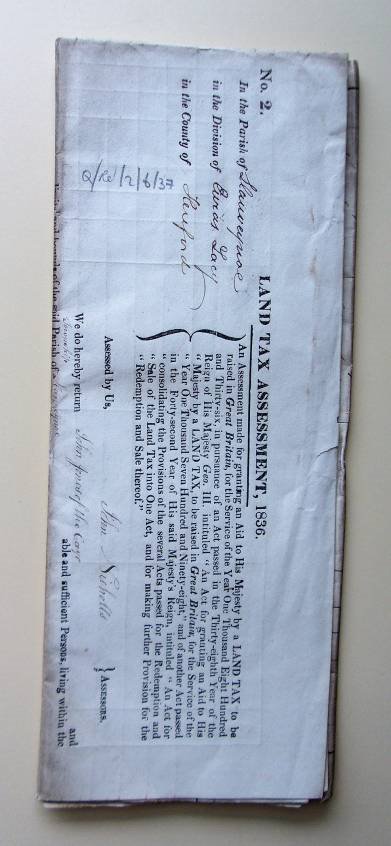 No. 2. LAND TAX ASSESSMENT, 1836.
In the Parish of Llanveynoe
in the Division of Ewias Lacy
in the County of Hereford
An Assessment made for granting an Aid to His Majesty by a LAND TAX to be
raised in Great Britain, for the Service of the Year One Thousand Eight Hundred
and Thirty-six, in pursuance of an Act passed in the Thirty-eighth Year of the
Reign of His Majesty Geo. III. intituled “ An Act for granting an Aid to His
“ Majesty by a LAND TAX, to be raised in Great Britain, for the Service of the
“ Year One Thousand Seven Hundred and Ninety-eight,” and of another Act passed
in the Forty-second Year of His said Majesty's Reign, intituled “ An Act for
“ consolidating the Provisions of the several Acts passed for the Redemption and
“ Sale of the Land Tax into One Act, and for making further Provision for the
“ Redemption and Sale thereof.”
Q/Re/2/6/37
Assessed by Us,
John Nicholls
ASSESSORS.
We do hereby return John of the and
able and sufficient Persons, living within the
and bounds of the said Parish of